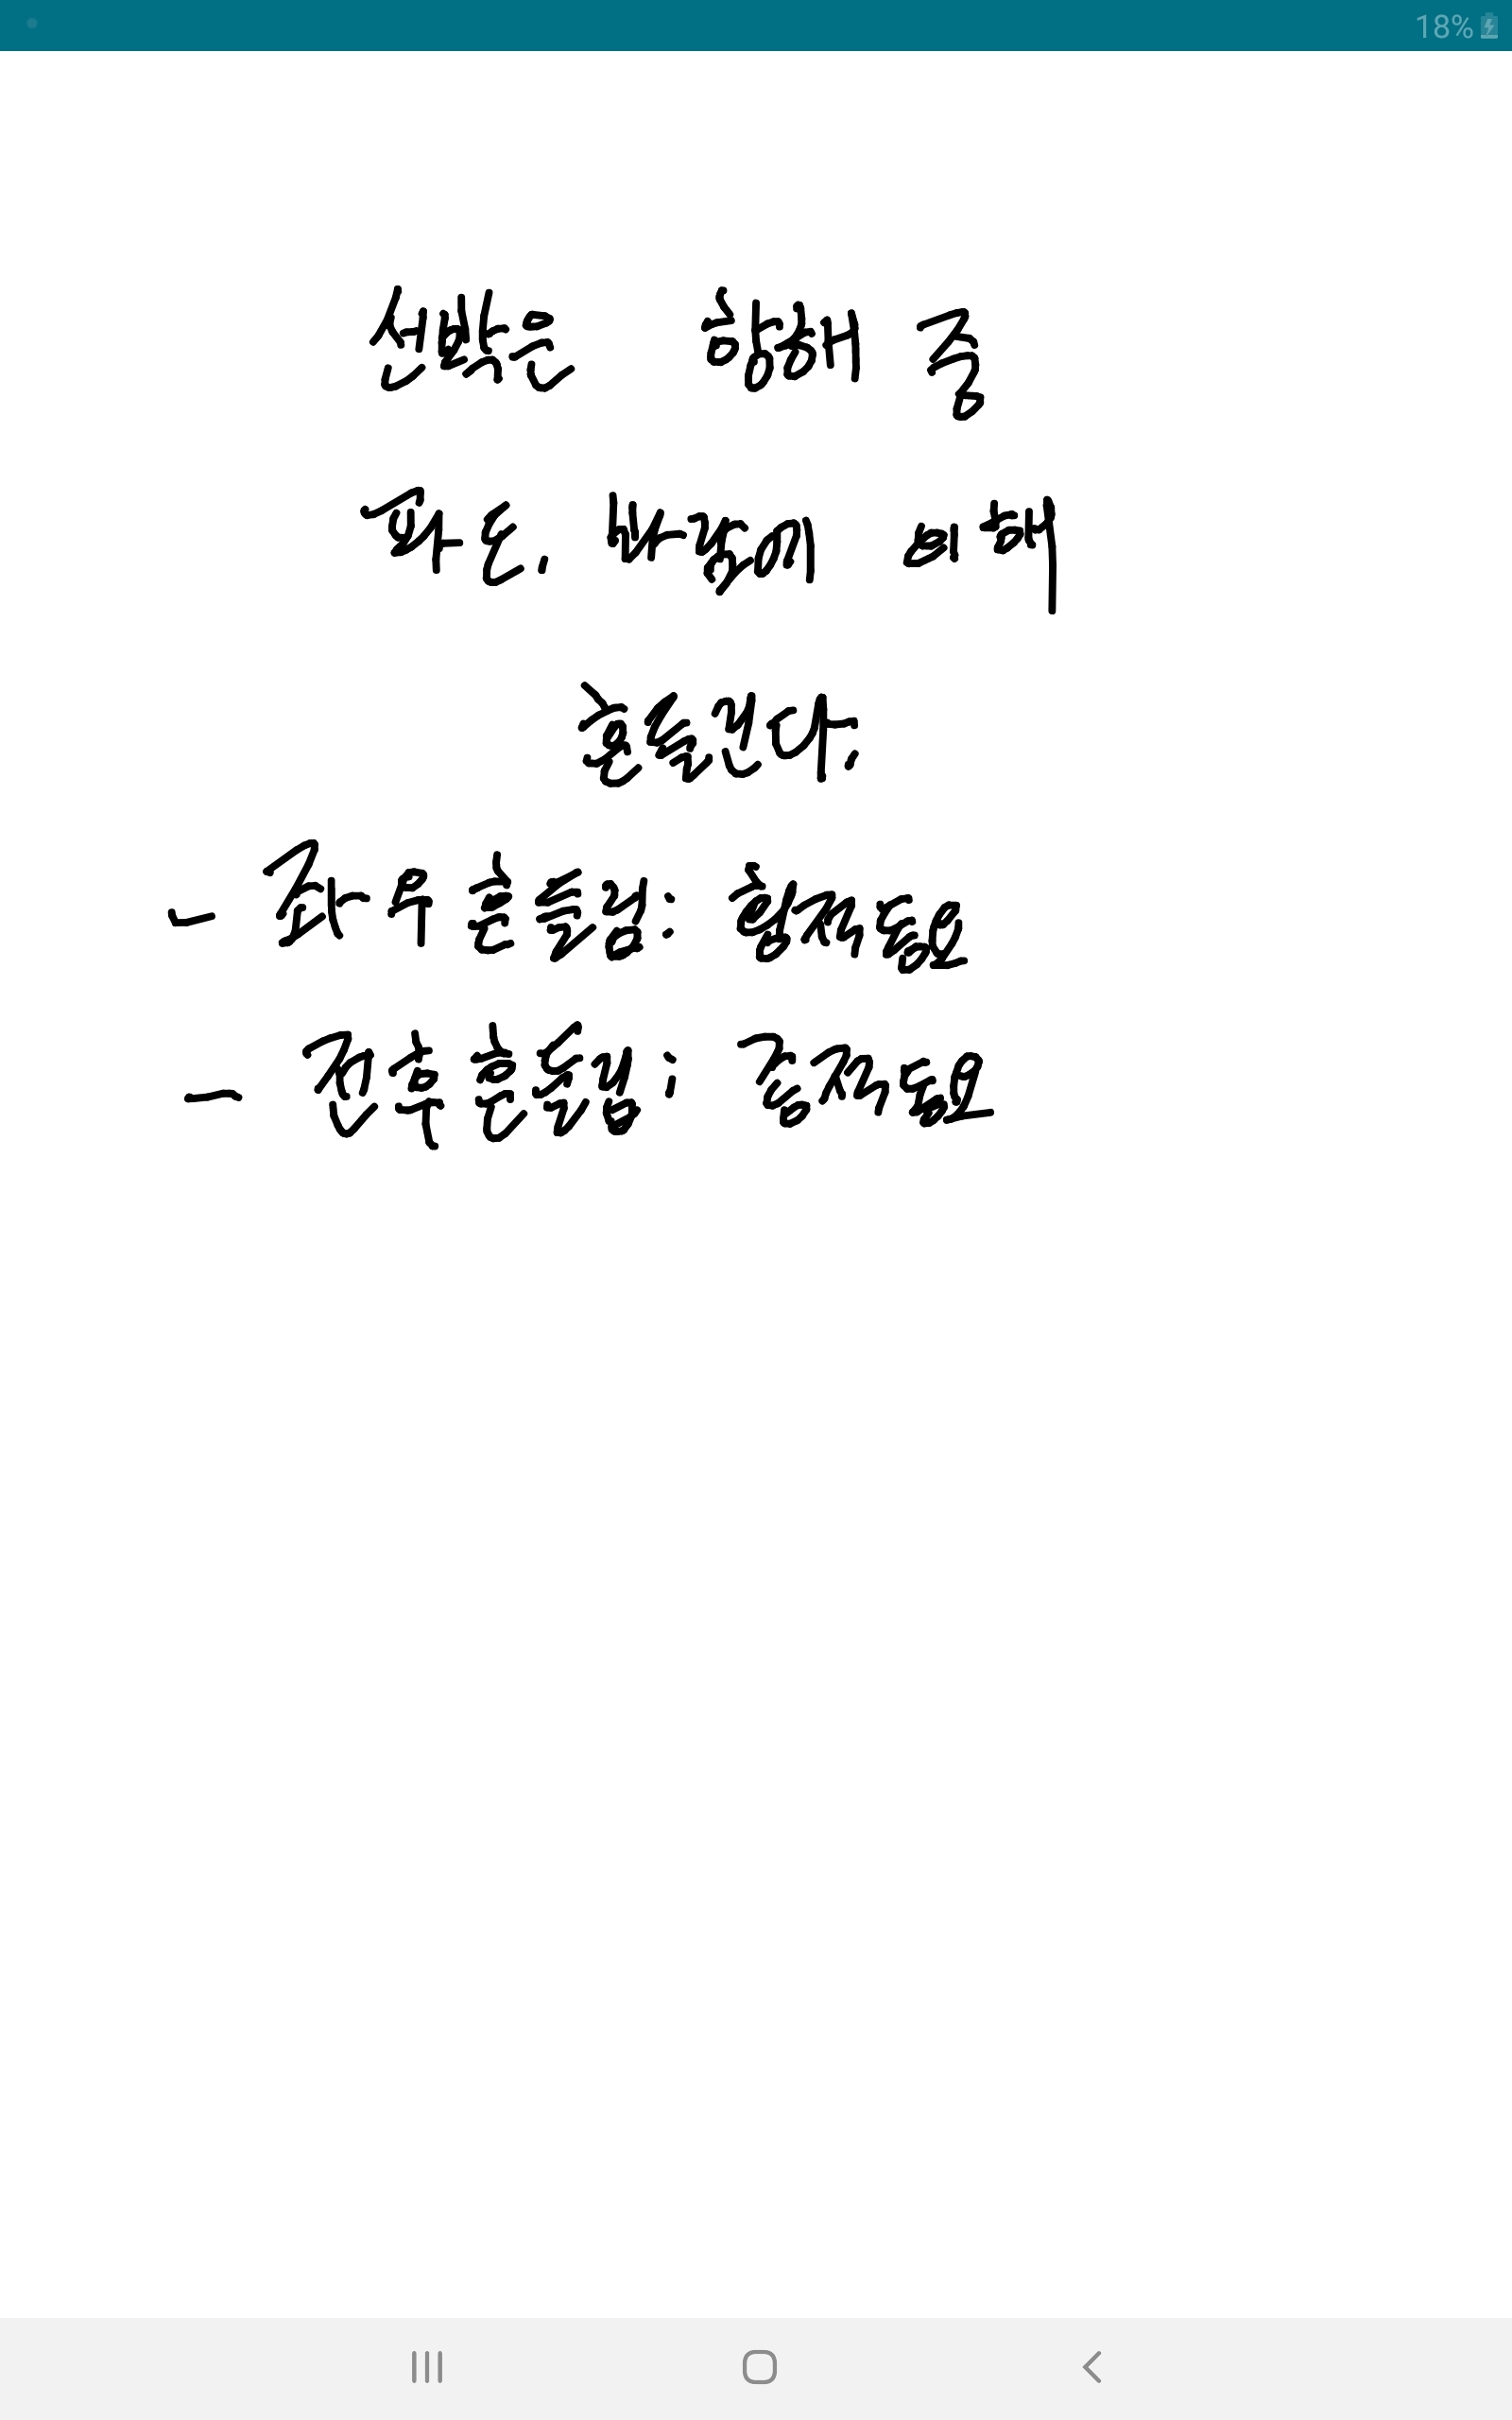 18%
선박은 항해 중
파도, 바람에 의해
흔들린다.
- 좌우 흔들림: 횡적동요
- 전후 흔들림: 종적동요